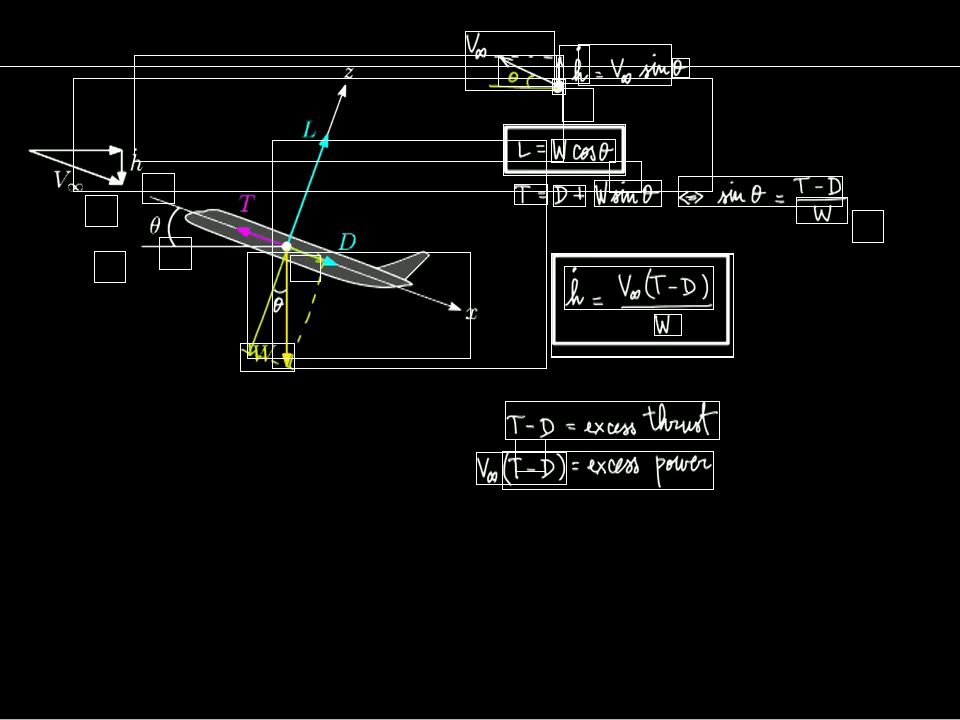 V∞
ḣ = V∞ sin θ
θ
z
L
L = W cos θ
ḣ
V∞
T = D + W sin θ ⇔ sin θ = T - D / W
T
θ
D
ḣ = V∞ (T - D) / W
θ
x
W
T - D = excess thrust
V∞ (T - D) = excess power